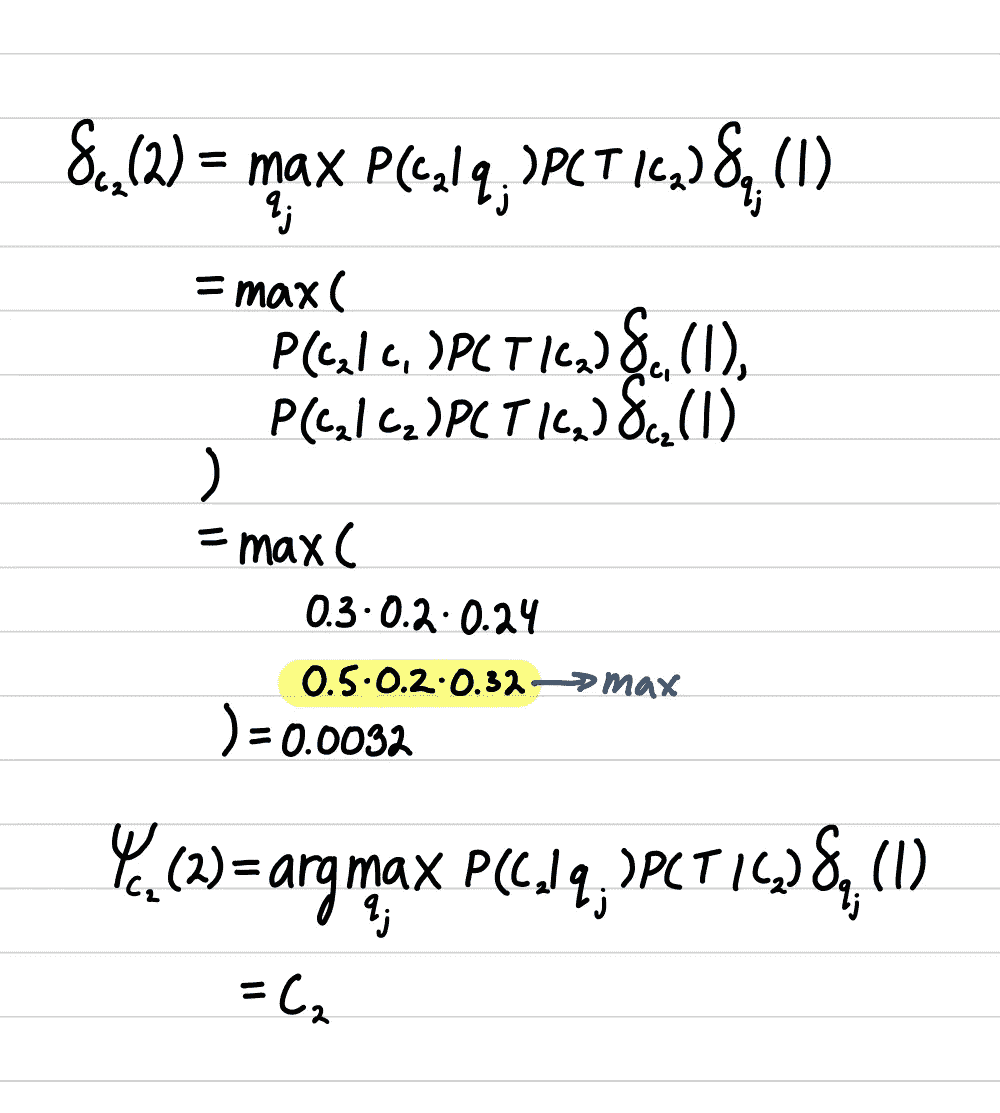 δ_c₂(2) = max_qⱼ P(c₂|qⱼ)P(T|c₂)δ_qⱼ(1)
= max(
P(c₂|c₁)P(T|c₂)δ_c₁(1),
P(c₂|c₂)P(T|c₂)δ_c₂(1)
)
= max(
0.3·0.2·0.24
0.5·0.2·0.32 → max
) = 0.0032
Ψ_c₂(2) = arg max_qⱼ P(c₂|qⱼ)P(T|c₂)δ_qⱼ(1)
= c₂